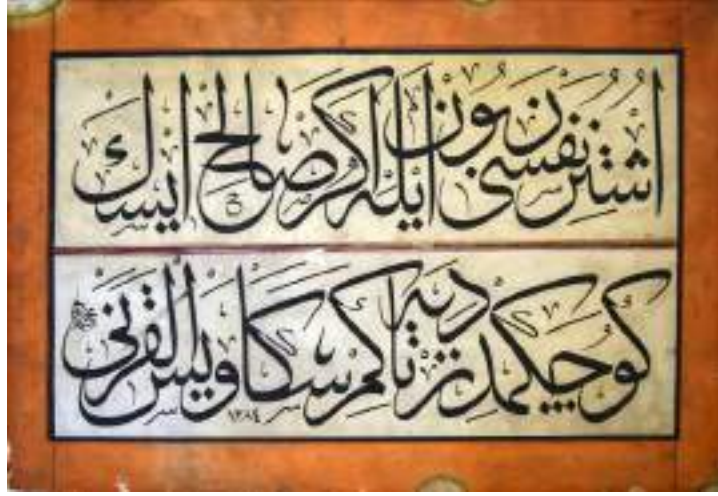 اشتر نفسنى زبون ايله اكر صالح ايسك
كوچكمدر ديه تا كم سكا ويس القرنى
١٢٨٤